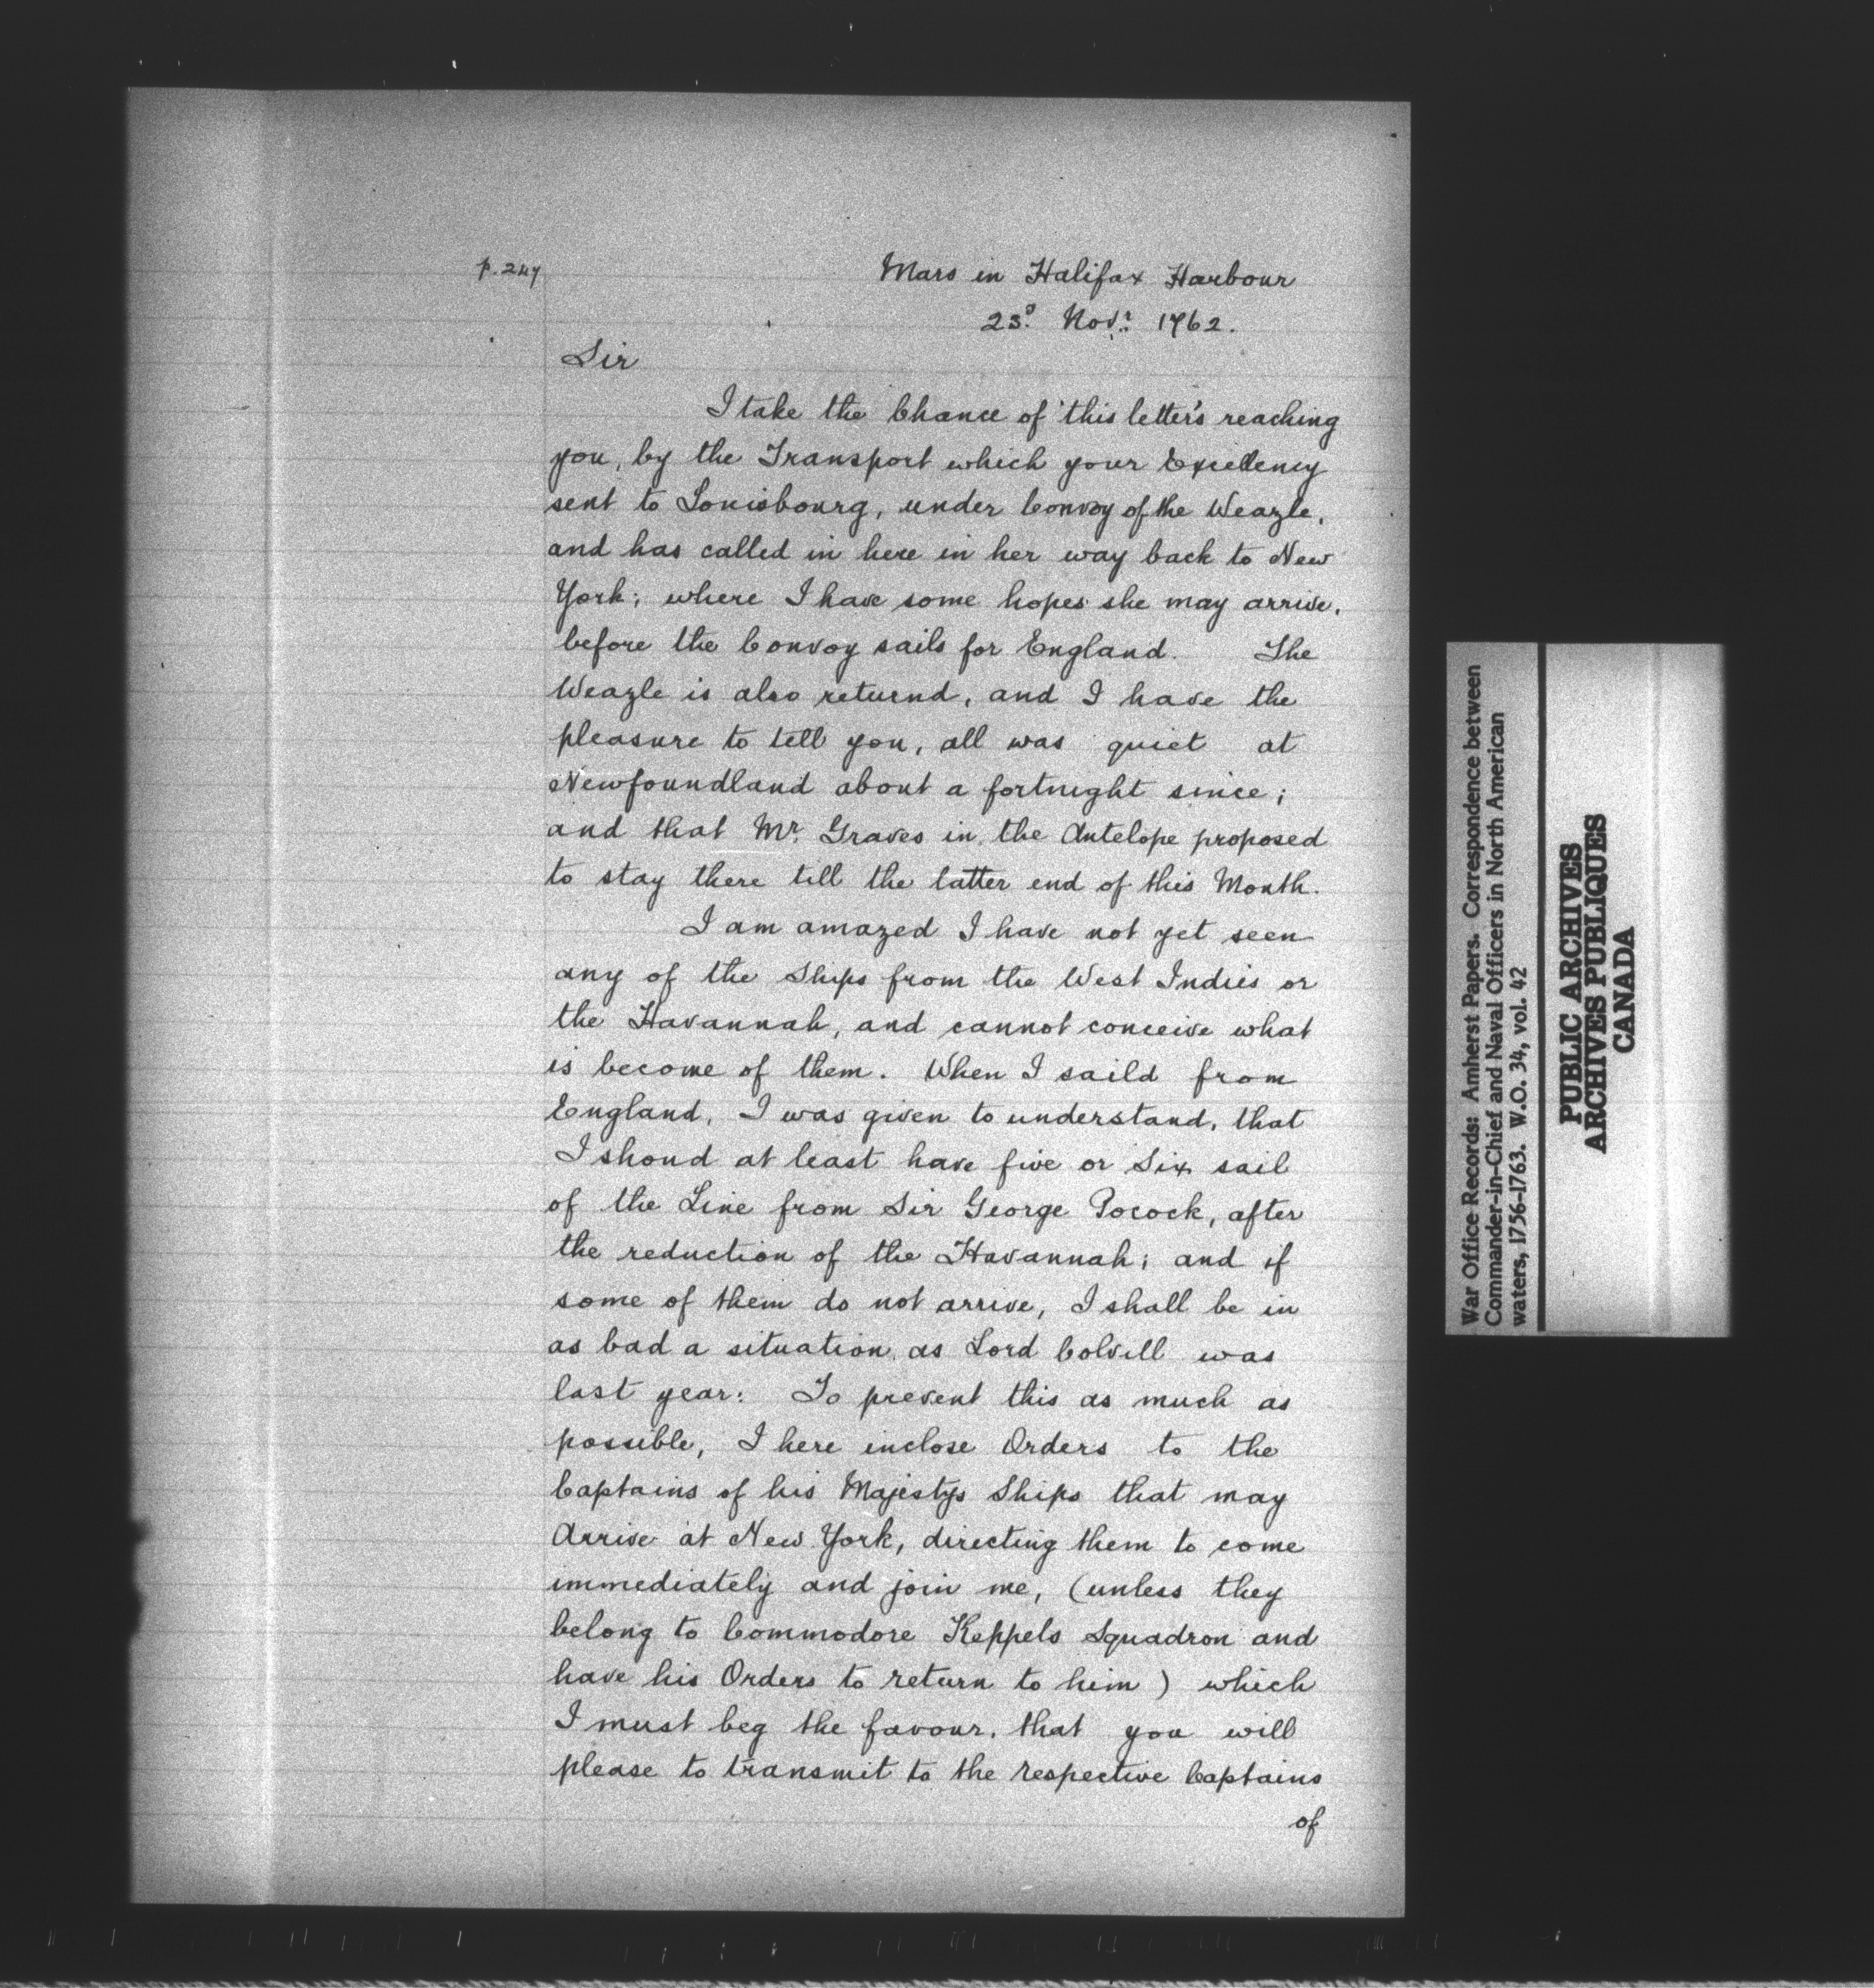 p. 247
Mars in Halifax Harbour
23d. Novr. 1762.
Sir
I take the Chance of this letter's reaching
you, by the Transport which your Excellency
sent to Louisbourg, under Convoy of the Weazle,
and has called in here in her way back to New
York; where I have some hopes she may arrive,
before the Convoy sails for England. The
Weazle is also returnd, and I have the
pleasure to tell you, all was quiet at
Newfoundland about a fortnight since;
and that Mr. Graves in the Antelope proposed
to stay there till the latter end of this Month.
I am amazed I have not yet seen
any of the Ships from the West Indies or
the Havannah, and cannot conceive what
is become of them. When I saild from
England, I was given to understand, that
I shoud at least have five or Six sail
of the Line from Sir George Pocock, after
the reduction of the Havannah; and if
some of them do not arrive, I shall be in
as bad a situation as Lord Colvill was
last year: To prevent this as much as
possible, I here inclose Orders to the
Captains of his Majestys Ships that may
Arrive at New York, directing them to come
immediately and join me, (unless they
belong to Commodore Keppels Squadron and
have his Orders to return to him) which
I must beg the favour, that you will
please to transmit to the respective Captains
of
War Office Records: Amherst Papers. Correspondence between
Commander-in-Chief and Naval Officers in North American
waters, 1756-1763. W.O. 34, vol. 42
PUBLIC ARCHIVES
ARCHIVES PUBLIQUES
CANADA